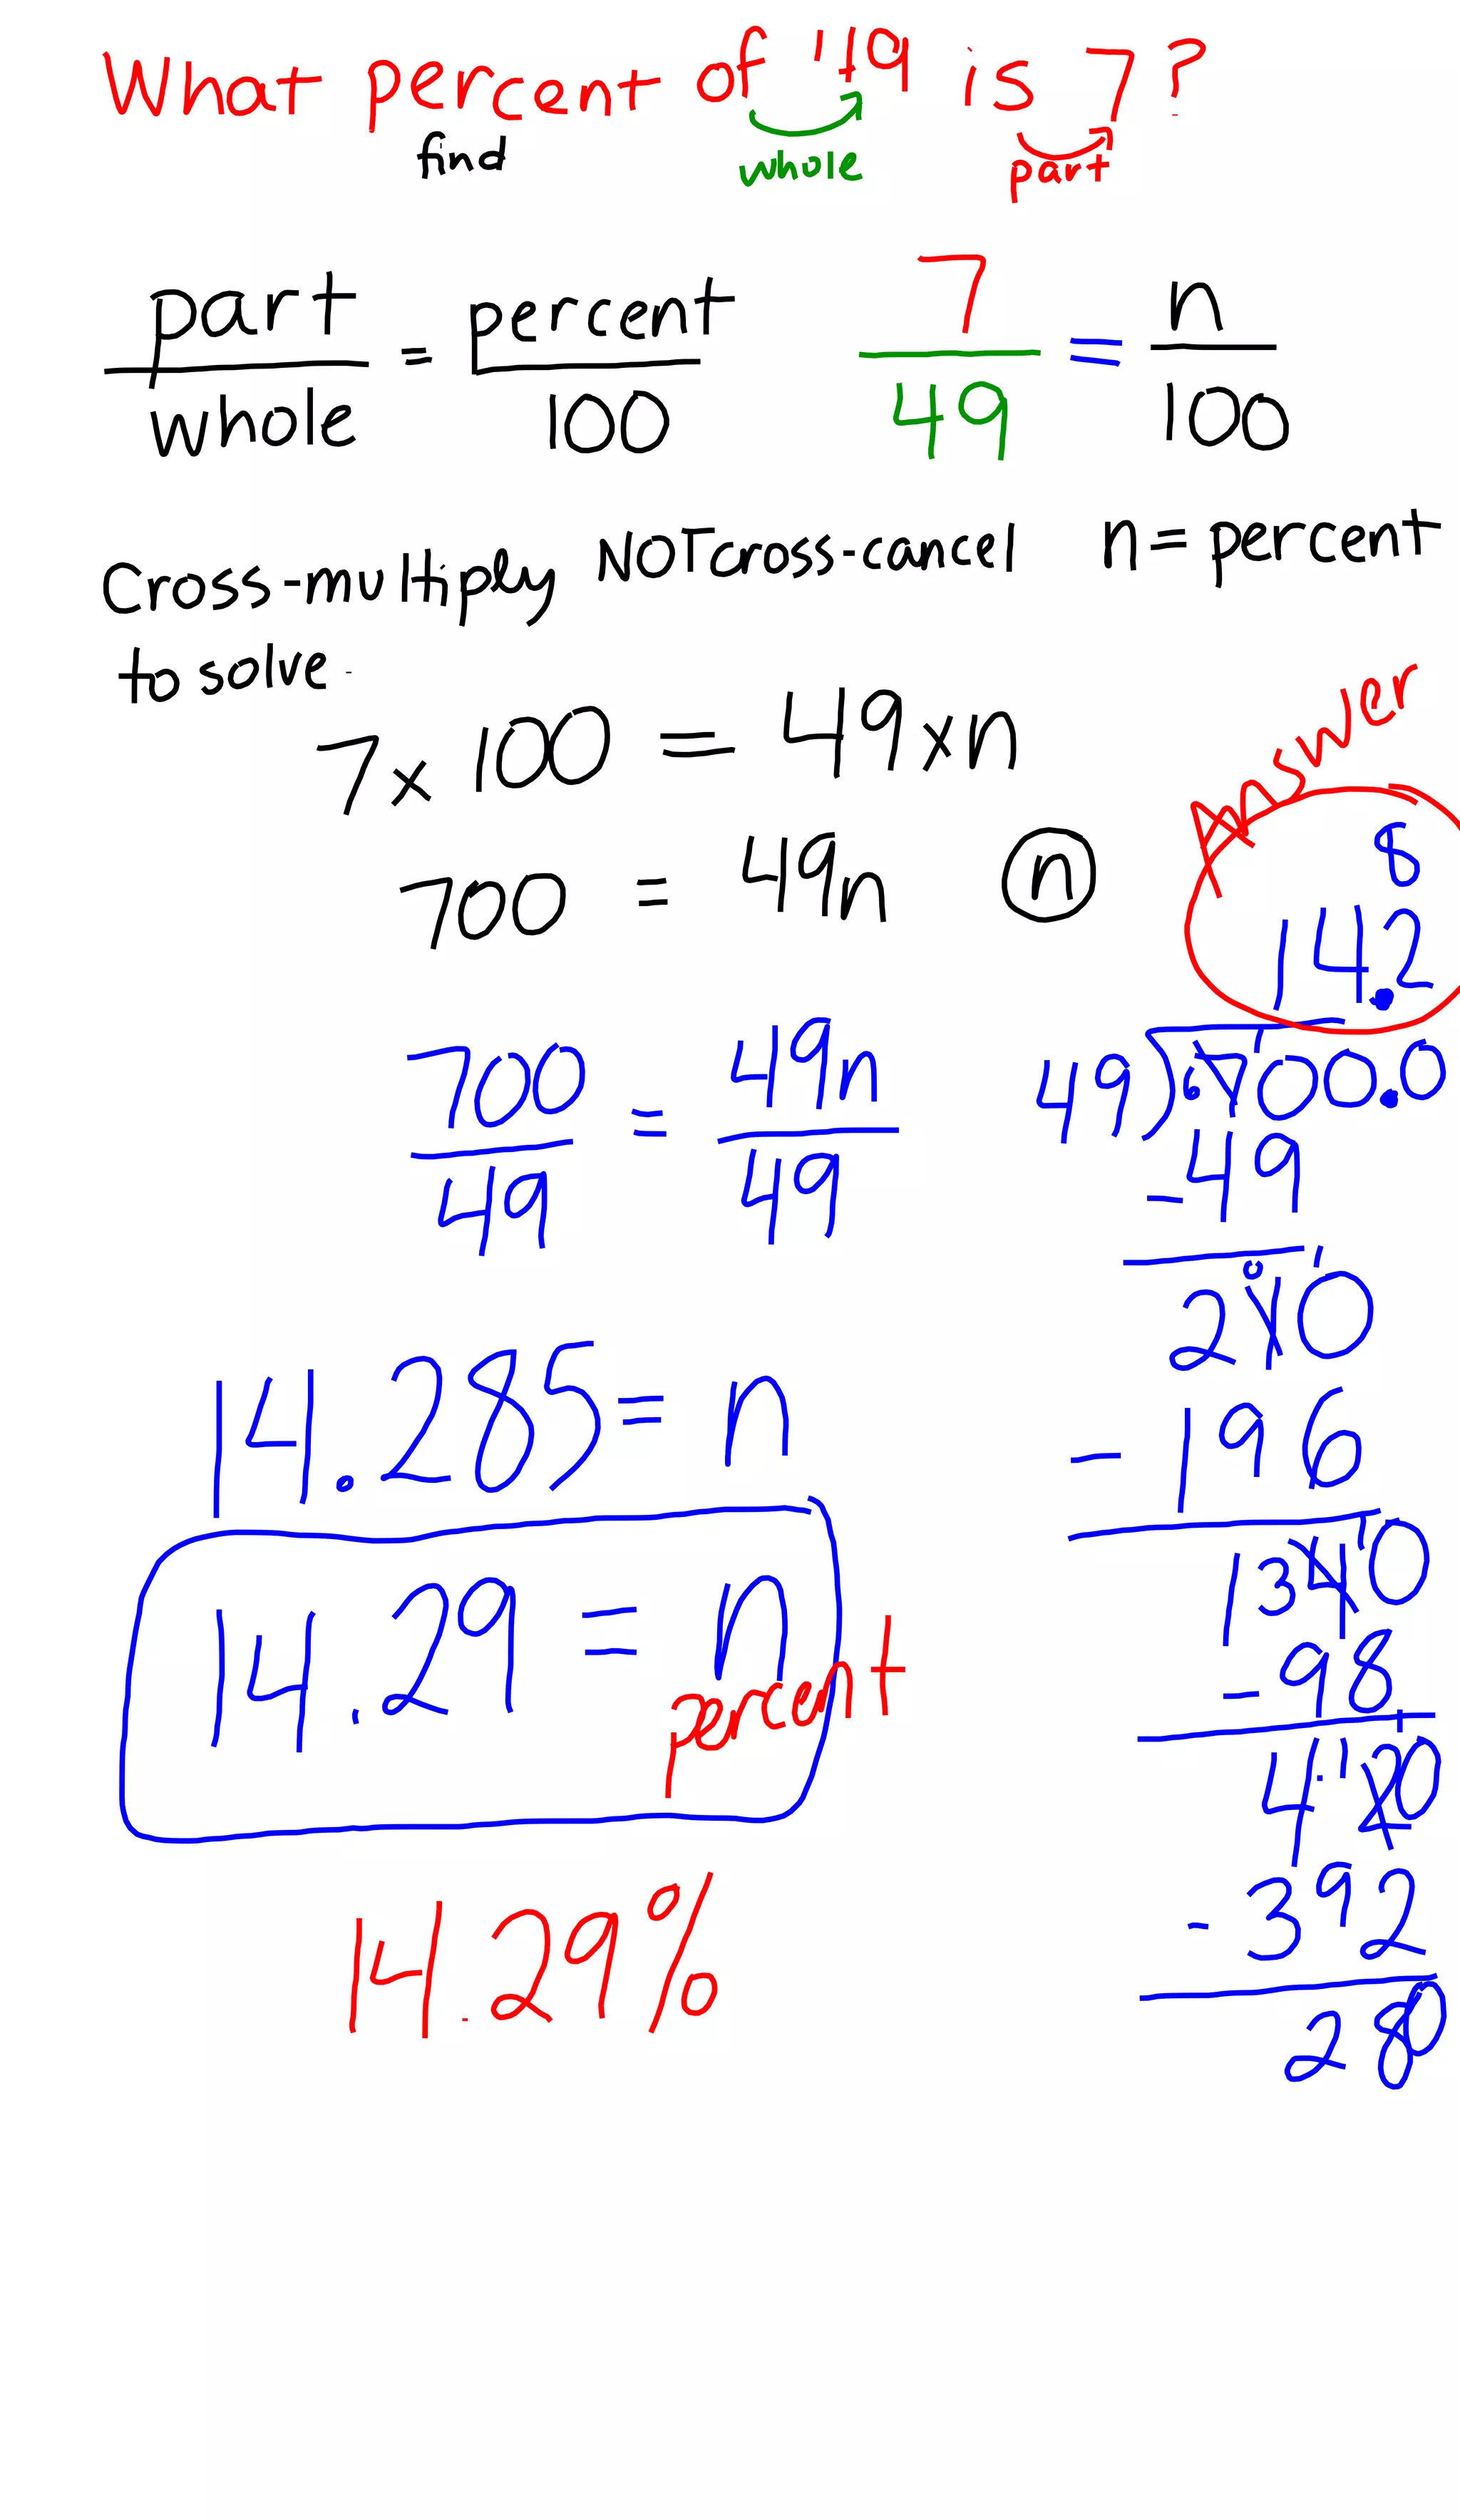 What percent of 49 is 7?
find whole part
part/whole = percent/100 7/49 = n/100
Cross-multiply NOT cross-cancel n = percent
to solve.
7 x 100 = 49 x n
Answer
700 = 49n n
8
14.2
700/49 = 49n/49
49)700.0
- 49
210
14.285 = n
- 196
140
14.29 = n
percent
- 98
420
- 392
14.29%
280